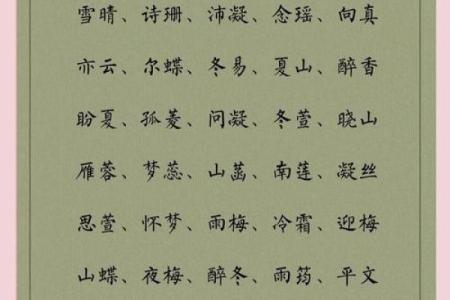 雪晴、诗珊、沛凝、念瑶、向真
亦云、尔蝶、冬易、夏山、醉香
盼夏、孤菱、问凝、冬萱、晓山
雁蓉、梦蕊、山菡、南莲、凝丝
思萱、怀梦、雨梅、冷霜、迎梅
山蝶、夜梅、醉冬、雨筠、平文